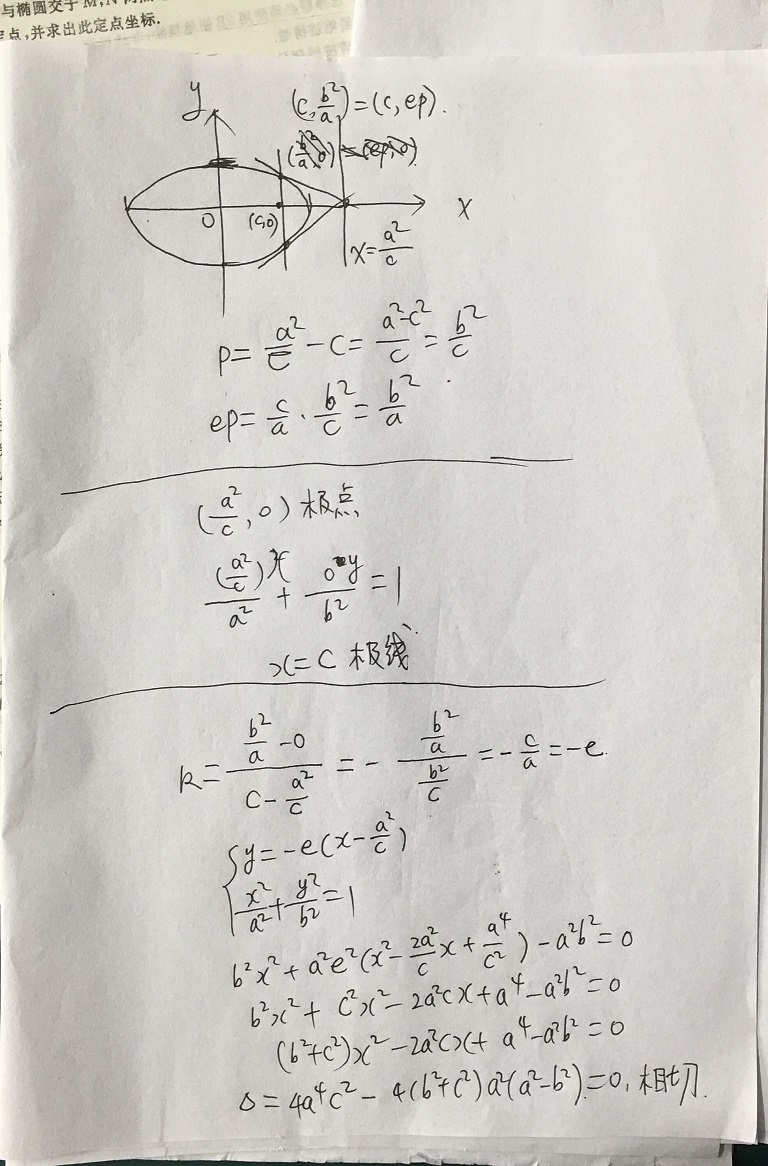 与椭圆交于M,N
点,并求出此定点坐标.
y
(c, b²/a) = (c, ep).
(b²/a, 0) = (ep, 0)
0
(c,0)
x
x = a²/c
p = a²/c - c = (a²-c²)/c = b²/c
ep = c/a · b²/c = b²/a
(a²/c, 0) 极点
(a²/c)x/a² + 0·y/b² = 1
x = c 极线
k = (b²/a - 0)/(c - a²/c) = - (b²/a)/(b²/c) = - c/a = -e
{ y = -e(x - a²/c)
x²/a² + y²/b² = 1
b²x² + a²e²(x² - 2a²/c x + a⁴/c²) - a²b² = 0
b²x² + c²x² - 2a²cx + a⁴ - a²b² = 0
(b²+c²)x² - 2a²cx + a⁴ - a²b² = 0
Δ = 4a⁴c² - 4(b²+c²)a²(a²-b²) = 0, 相切.